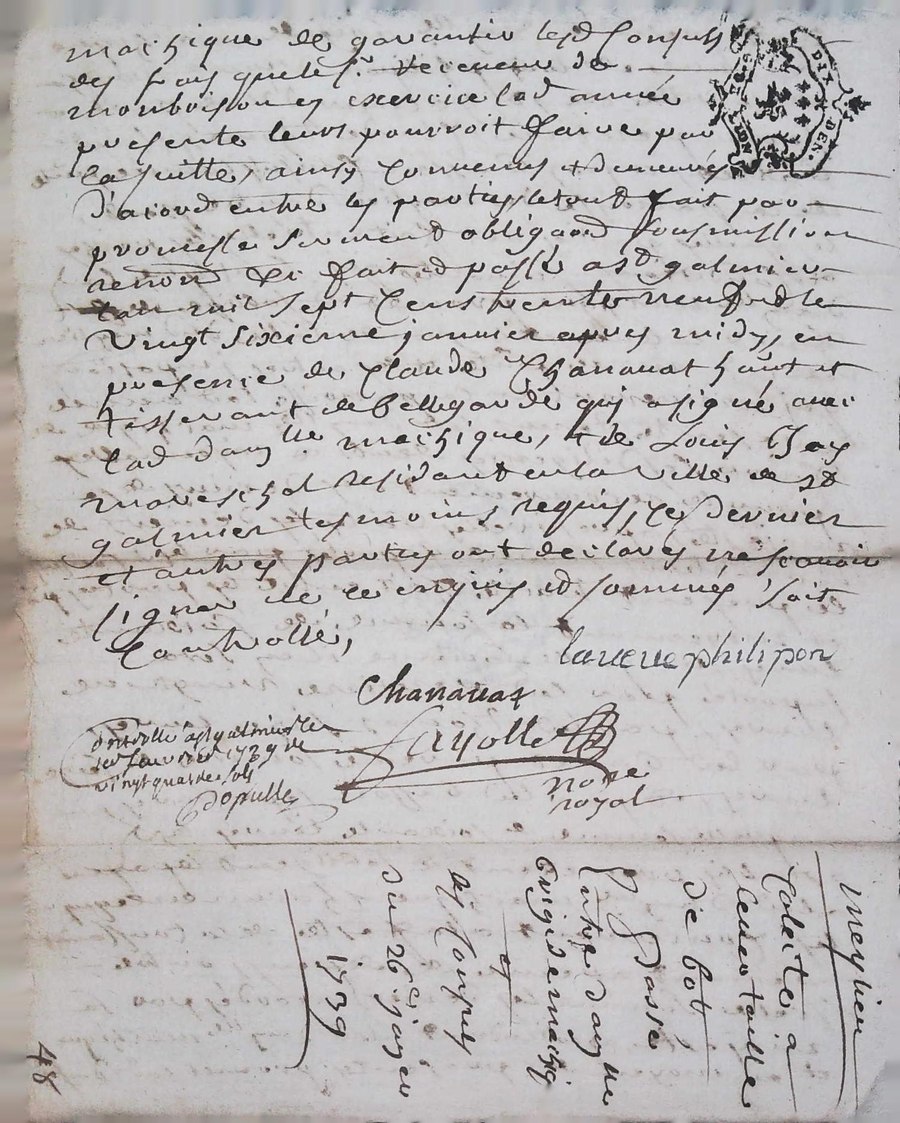 machique de garantir lesd Consuls
des frais que le Sr. Receveur de
monbrison en exercice lad année
presente leurs pourroit faire par
la suitte, ainsy Convenus et demeurés
d'acord entre les parties le tout fait par
promesse serment obligaon Sousmission
renon &c fait et passé a st galmier
Lan mil sept Cens trente neuf et le
Vingt sixieme janvier apres midy, en
presence de Claude Chanavat
tisserant de bellegarde quy a signé avec
lad daylle machique, et de Louis
mareschal residant en la ville de st
galmier tesmoins requis, ce dernier
et autres parties ont declarés ne scavoir
signer de ce enquis et sommés soit
Controllé,
laveuve philipon
Chanavat
fayolle
notre
royal
Controllé a st galmier le
fevrier 1739 Re
vingt quatre sols
DIX DEN.
meylieu
Colecte a
de bot
passé
Entre dayne
machiq
et
les Consuls
du 26e janvier
1739
48